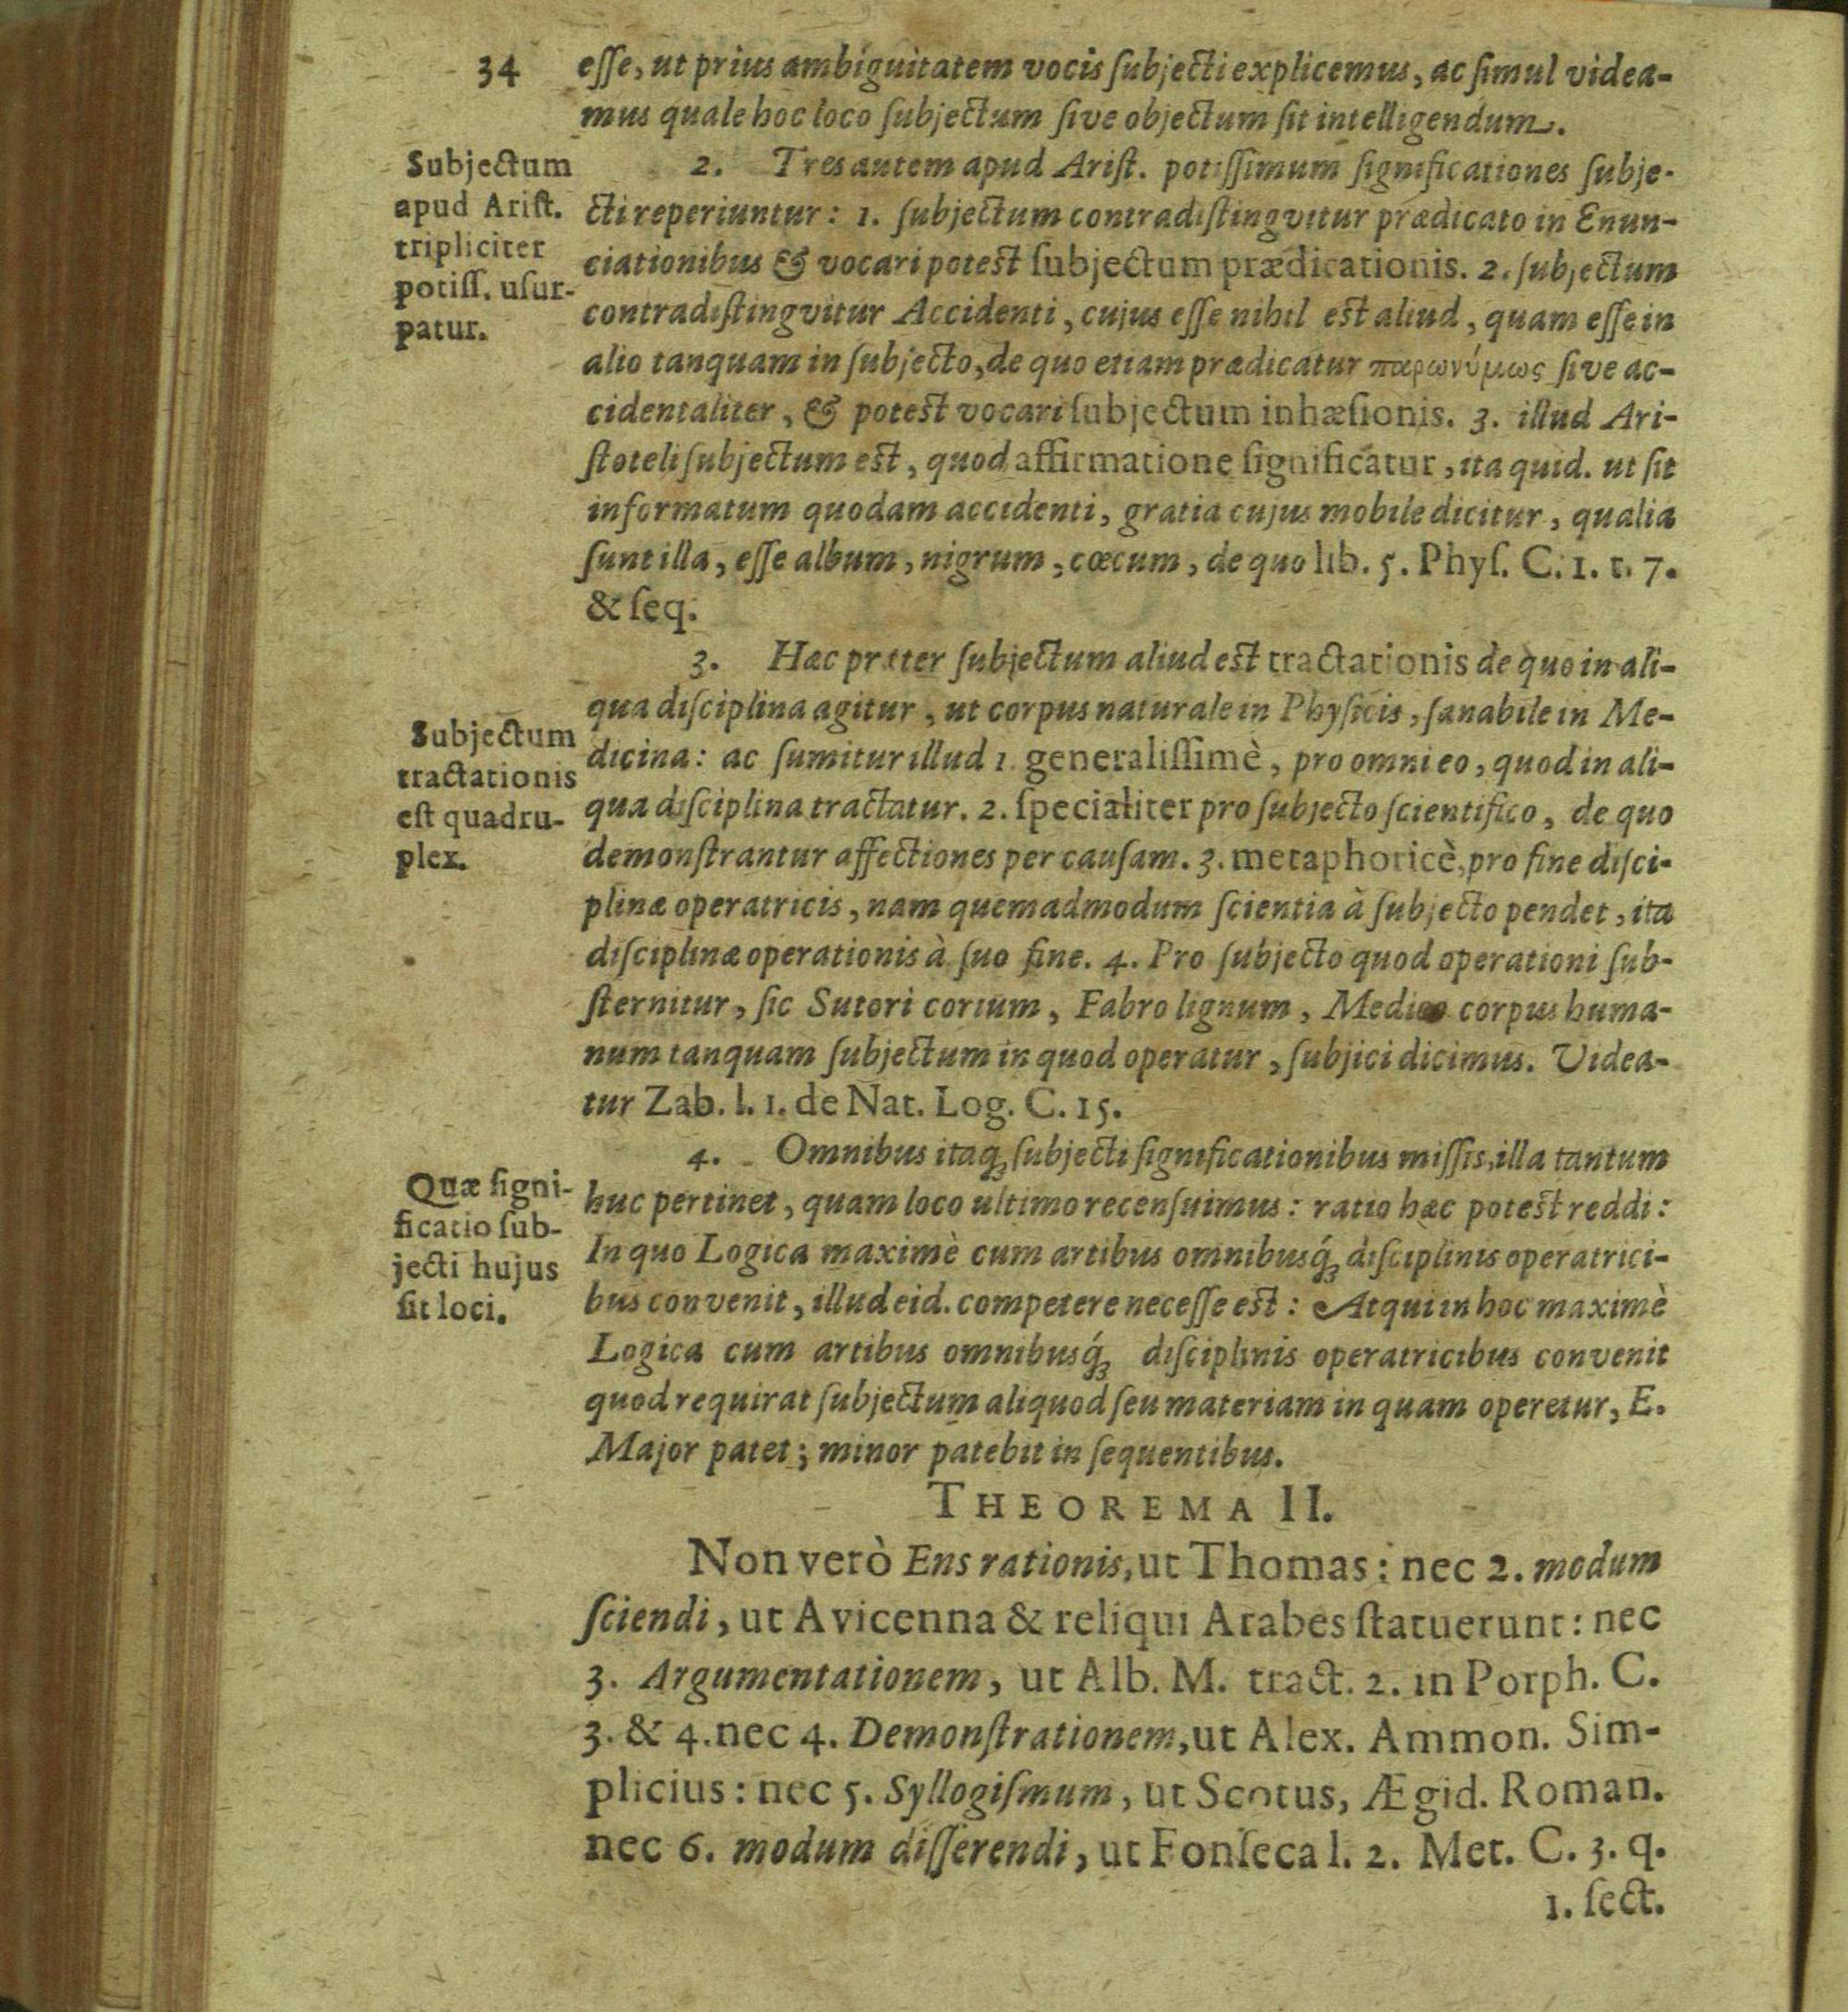 34
esse, ut prius ambiguitatem vocis subjecti explicemus, ac simul videa-
mus quale hoc loco subjectum sive objectum sit intelligendum.
Subjectum
apud Arist.
tripliciter
potiss. usur-
patur.
2. Tres autem apud Arist. potissimum significationes subje-
cti reperiuntur: 1. subjectum contradistingvitur prædicato in Enun-
ciationibus & vocari potest subjectum prædicationis. 2. subjectum
contradistingvitur Accidenti, cujus esse nihil est aliud, quam esse in
alio tanquam in subjecto, de quo etiam prædicatur παρωνύμως sive ac-
cidentaliter, & potest vocari subjectum inhæsionis. 3. illud Ari-
stoteli subjectum est, quod affirmatione significatur, ita quid. ut sit
informatum quodam accidenti, gratia cujus mobile dicitur, qualia
sunt illa, esse album, nigrum, cœcum, de quo lib. 5. Phys. C. 1. t. 7.
& seq.
Subjectum
tractationis
est quadru-
plex.
3. Hæc præter subjectum aliud est tractationis de quo in ali-
qua disciplina agitur, ut corpus naturale in Physicis, sanabile in Me-
dicina: ac sumitur illud 1. generalissimè, pro omni eo, quod in ali-
qua disciplina tractatur. 2. specialiter pro subjecto scientifico, de quo
demonstrantur affectiones per causam. 3. metaphoricè, pro fine disci-
plinæ operatricis, nam quemadmodum scientia à subjecto pendet, ita
disciplinæ operationis à suo fine. 4. Pro subjecto quod operationi sub-
sternitur, sic Sutori corium, Fabro lignum, Medico corpus huma-
num tanquam subjectum in quod operatur, subjici dicimus. Videa-
tur Zab. l. 1. de Nat. Log. C. 15.
Quæ signi-
ficatio sub-
jecti hujus
sit loci.
4. Omnibus itaq; subjecti significationibus missis, illa tantum
huc pertinet, quam loco ultimo recensuimus: ratio hæc potest reddi:
In quo Logica maximè cum artibus omnibusq́; disciplinis operatrici-
bus convenit, illud eid. competere necesse est: Atqui in hoc maximè
Logica cum artibus omnibusq́; disciplinis operatricibus convenit
quod requirat subjectum aliquod seu materiam in quam operetur, E.
Major patet; minor patebit in sequentibus.
THEOREMA II.
Non verò Ens rationis, ut Thomas: nec 2. modum
sciendi, ut Avicenna & reliqui Arabes statuerunt: nec
3. Argumentationem, ut Alb. M. tract. 2. in Porph. C.
3. & 4. nec 4. Demonstrationem, ut Alex. Ammon. Sim-
plicius: nec 5. Syllogismum, ut Scotus, Ægid. Roman.
nec 6. modum disserendi, ut Fonseca l. 2. Met. C. 3. q.
1. sect.